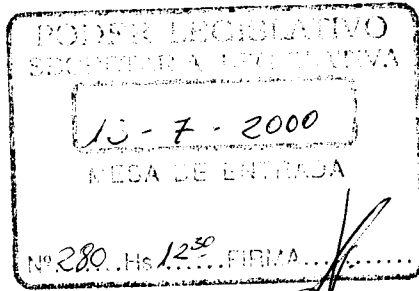 PODER LEGISLATIVO
SECRETARIA LEGISLATIVA
- 7 - 2000
MESA DE ENTRADA
Nº 280 Hs 12³⁰ FIRMA